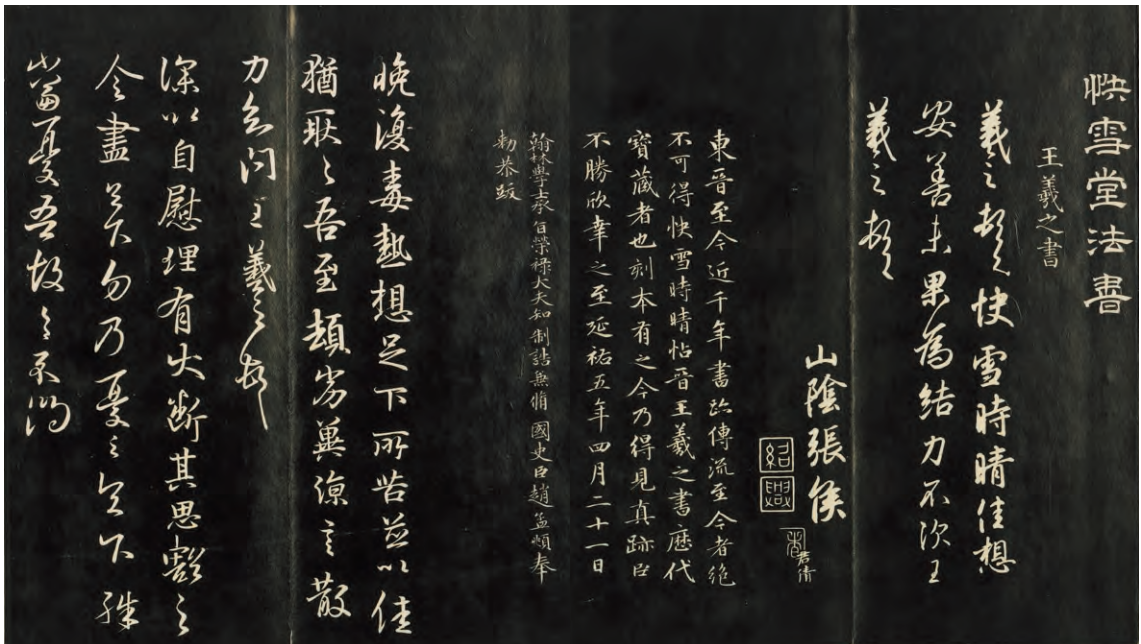 快雪堂法書
王羲之書
羲之頓首快雪時晴佳想
安善未果為結力不次王
羲之頓首
山陰張侯
紹興
君倩
東晉至今近千年書跡傳流至今者絕
不可得快雪時晴帖晉王羲之書歷代
寶藏者也刻本有之今乃得見真跡臣
不勝欣幸之至延祐五年四月二十一日
翰林學士承旨榮祿大夫知制誥兼脩國史臣趙孟頫奉
勅恭跋
晚復毒熱想足下所苦並以佳
猶耿々吾至頓劣冀涼言散
力知問王羲之頓首
深以自慰理有大斷其思豁之
令盡足下勿乃憂之足下殊
當憂吾故具示問